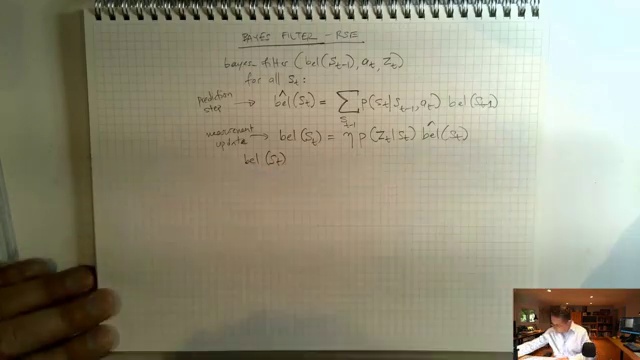 BAYES FILTER - RSE
bayes filter (bel(St-1), at, Zt)
for all St:
Prediction step → b̂el(St) = ∑St-1 P(St|St-1, at) bel(St-1)
measurement update → bel(St) = η P(Zt|St) b̂el(St)
bel(St)